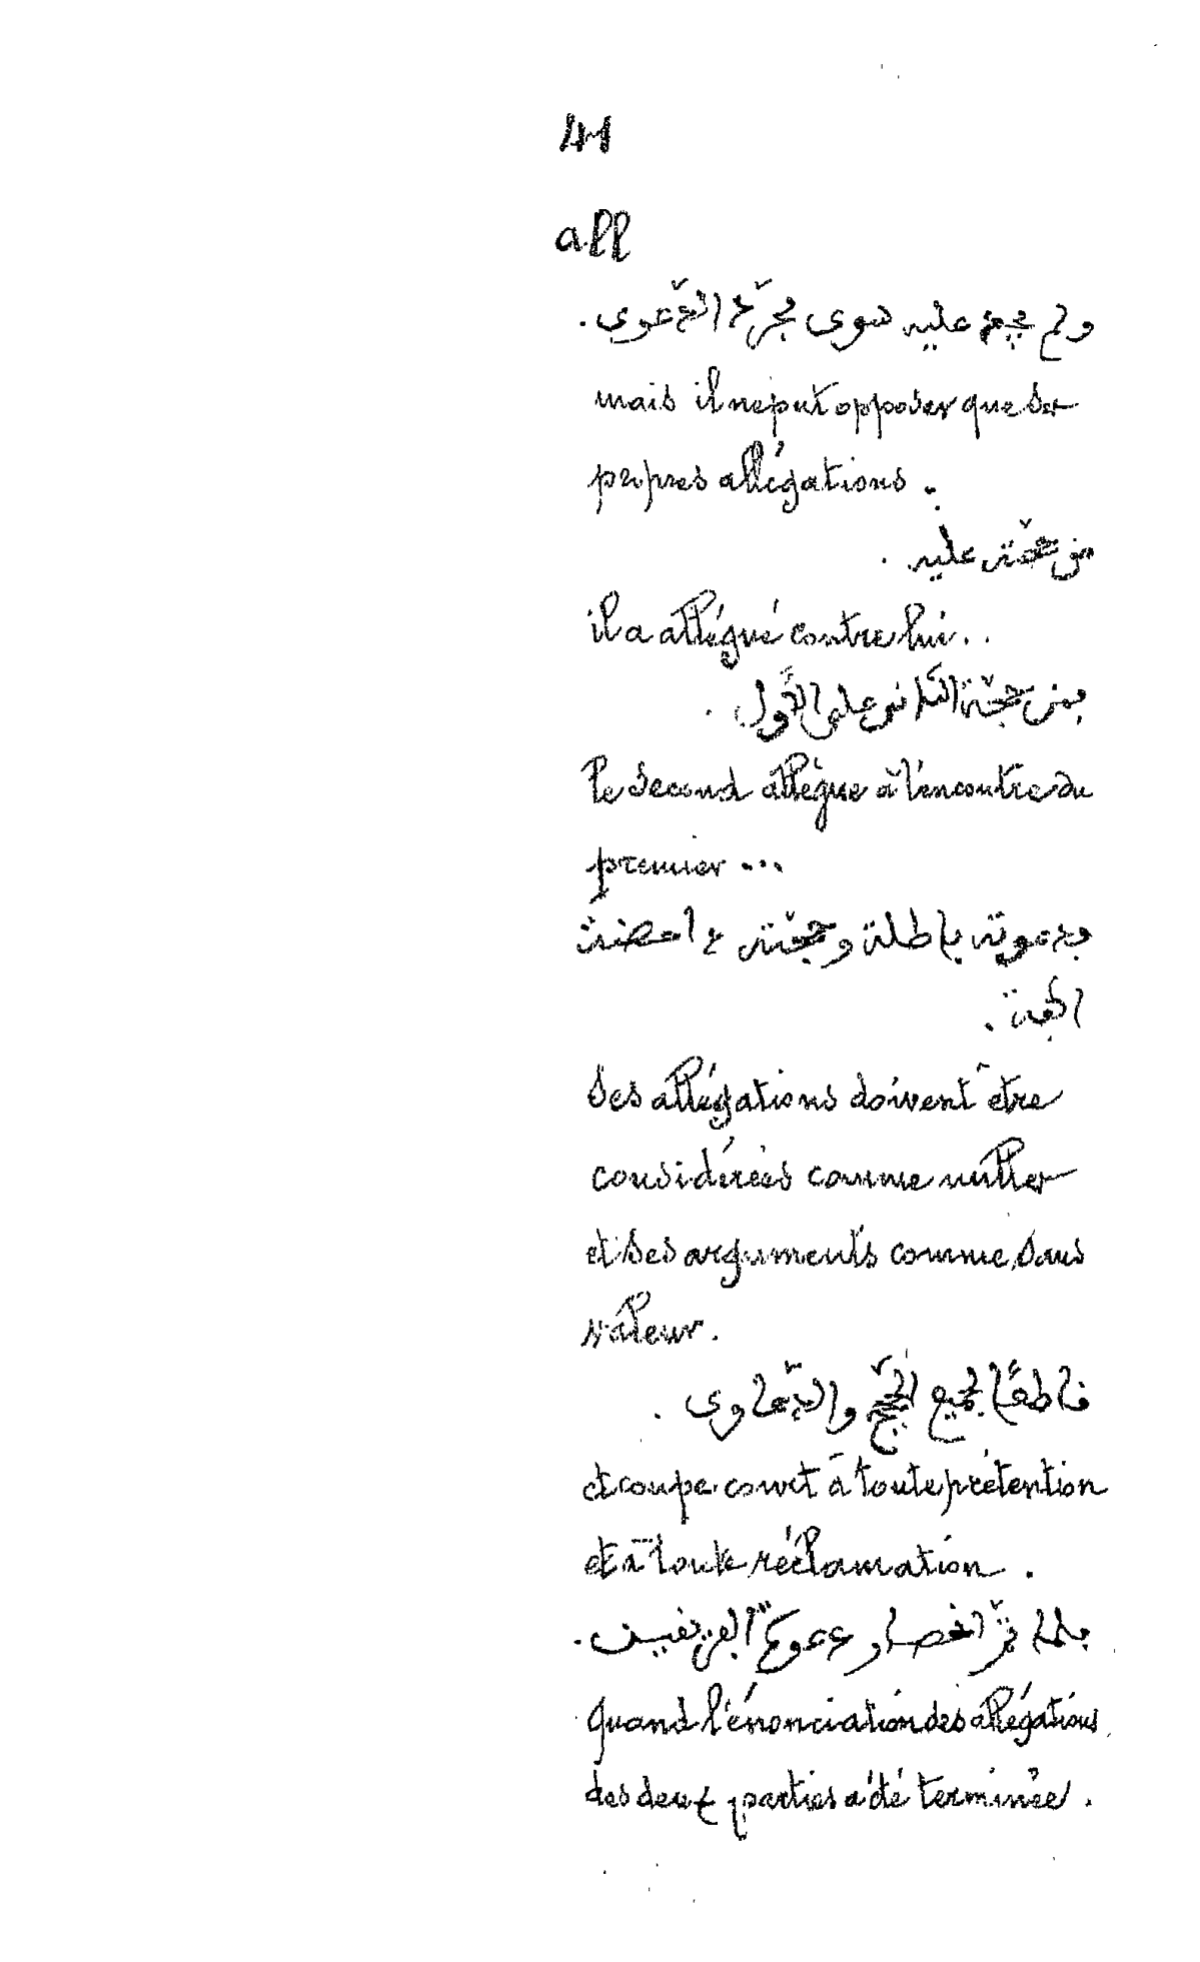 41
all
ولم يجد عليه سوى مجرّد الدّعوى .
mais il ne put opposer que se
propres allégations .
من حجّته عليه .
il a allégué contre lui . .
فمن حجّة الثّاني على الأوّل .
le second allègue à l'encontre du
premier ...
فدعوته باطلة وحجّته داحضة
الجهة .
ses allégations doivent être
considérées comme nulles
et ses arguments comme sans
valeur .
قاطعًا لجميع الحجج والدّعاوى .
et coupe court à toute prétention
et à toute réclamation .
فلما تمّ دعوى الفريقين .
quand l'énonciation des allégations
des deux parties a été terminée .